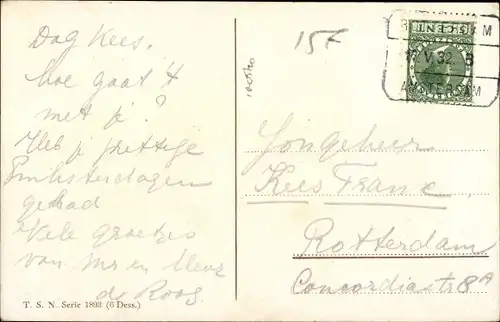 Dag Kees.
hoe gaat 't
met je?
Heb je prettige
Pinksterdagen
gehad
Vele groetjes
van Mr en Mevr
de Roos.
T. S. N. Serie 1893 (6 Dess.)
15f
5 CENT
V.32. 8
AMSTERDAM
Jongeheer
Kees Franx
Rotterdam
Concordiastr 8A